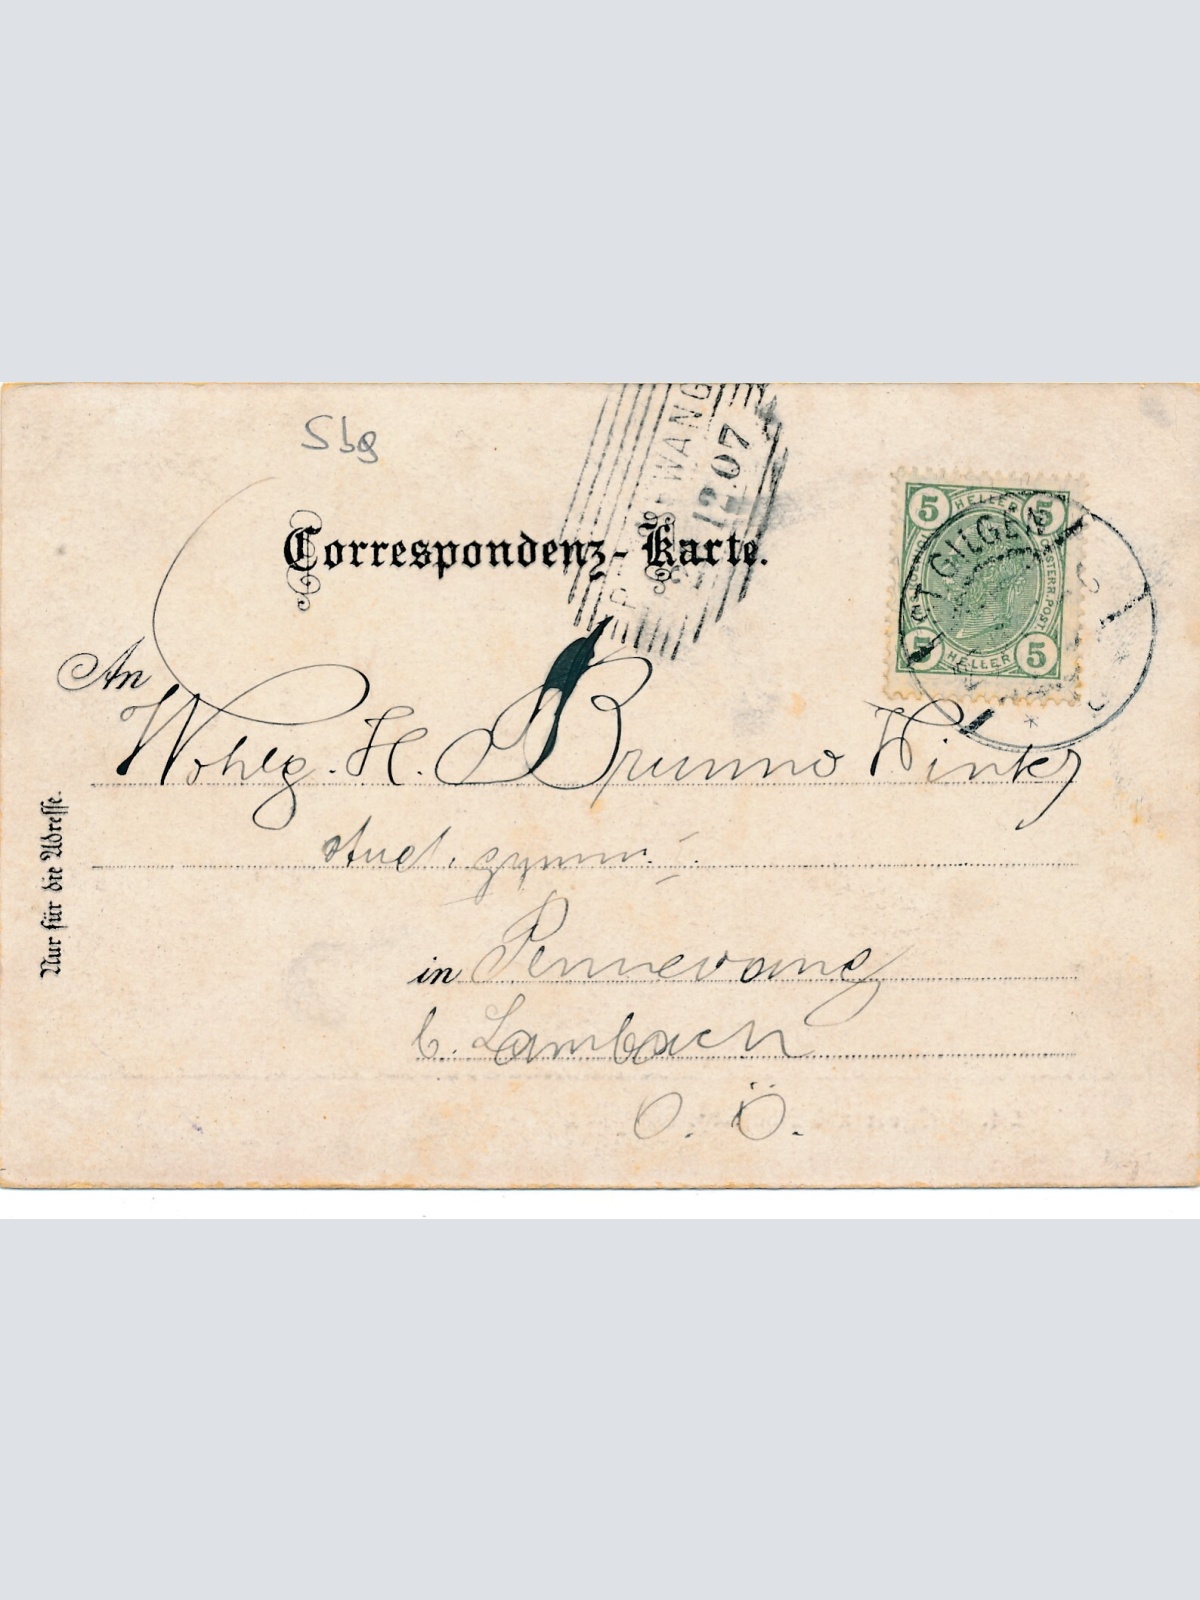 Sbg
WANG
12 07
Correspondenz-Karte.
5 HELLER 5
ST GILGEN
ÖSTERR. POST
5 HELLER 5
An
Wohlg. H. Brunno
stud. gymn.
in Pennewang
b. Lambach
O. Ö.
Nur für die Adresse.